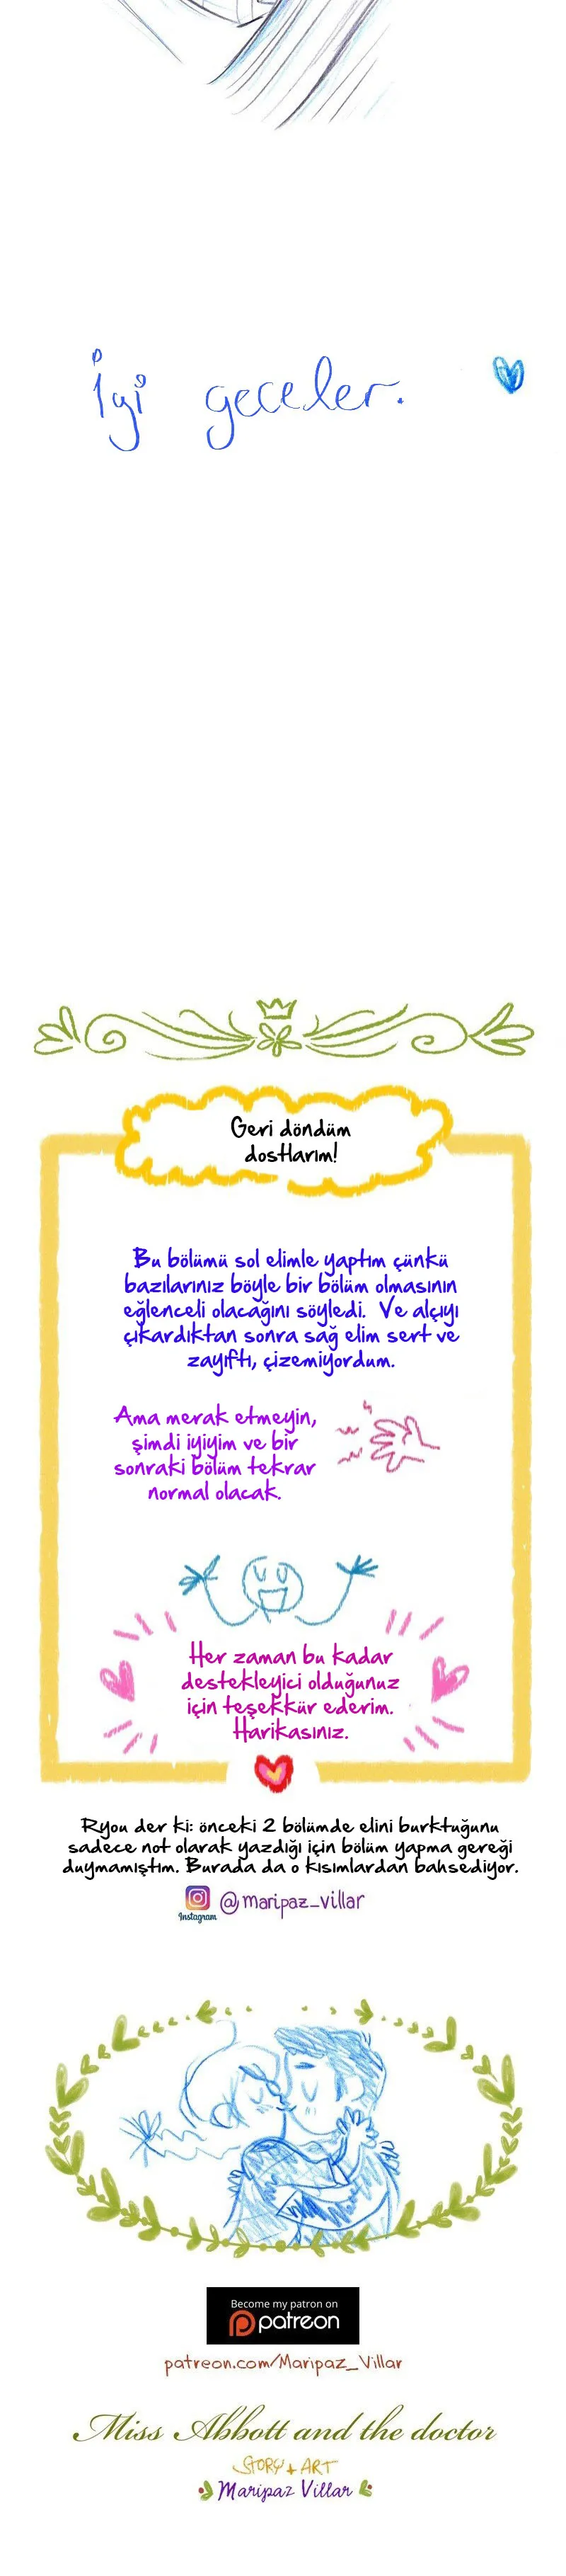 İyi geceler.
Geri döndüm
dostlarım!
Bu bölümü sol elimle yaptım çünkü
bazılarınız böyle bir bölüm olmasının
eğlenceli olacağını söyledi. Ve alçıyı
çıkardıktan sonra sağ elim sert ve
zayıftı, çizemiyordum.
Ama merak etmeyin,
şimdi iyiyim ve bir
sonraki bölüm tekrar
normal olacak.
Her zaman bu kadar
destekleyici olduğunuz
için teşekkür ederim.
Harikasınız.
Ryou der ki: önceki 2 bölümde elini burktuğunu
sadece not olarak yazdığı için bölüm yapma gereği
duymamıştım. Burada da o kısımlardan bahsediyor.
Instagram @maripaz_villar
Become my patron on
patreon
patreon.com/Maripaz_Villar
Miss Abbott and the doctor
STORY + ART
Maripaz Villar